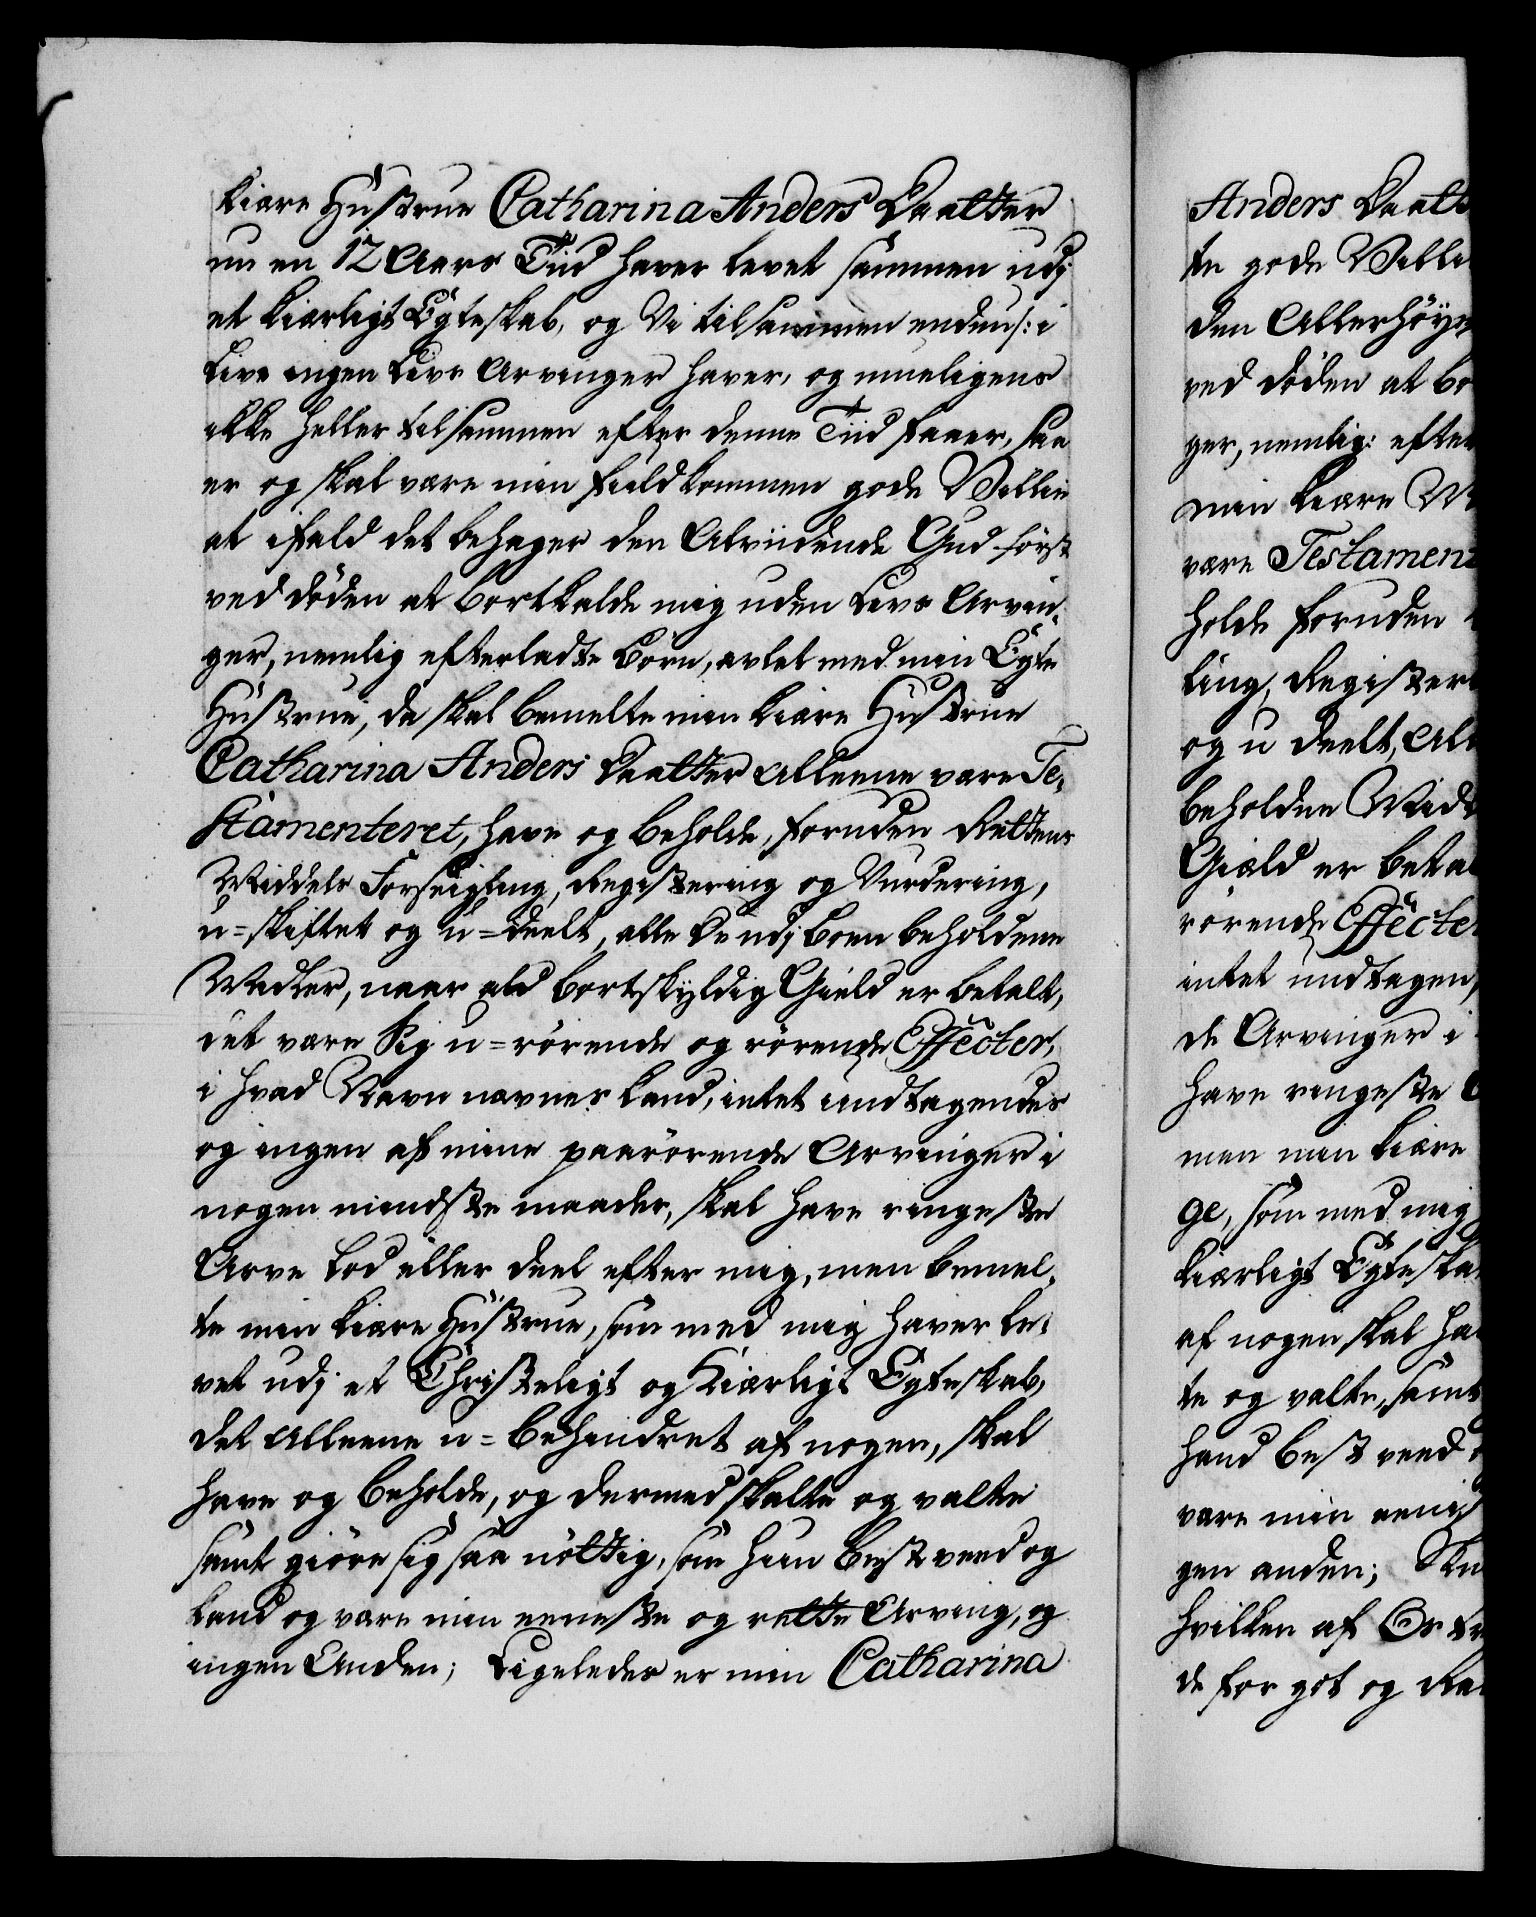 kiære Hustrue Catharina Anders Daatter
nu en 12 Aars Tiid haver levet sammen udj
et kiærligt Egteskab, og Vi tilsammen endnu /: i
live ingen Livs Arvinger haver, og mueligens
ikke heller tilsammen efter denne Tiid faaer, saa
er og skal være min fuldkommen gode Villie
at ifald det behager den Alviidende Gud først
ved døden at bortkalde mig uden Livs Arvin-
ger, nemlig efterladte Børn, avlet med min Egte
Hustrue, da skal bemelte min kiære Hustrue
Catharina Anders Daatter alleene være Te-
stamenteret, have og beholde, foruden Rettens
Middels Forseigling, Registering og Vurdering,
u=skiftet og u=deelt, alle de udj Boen beholdene
Midler, naar ald bortskyldig Gield er betalt,
det være sig u=rørende og rørende Effecter,
i hvad Navn nævnes kand, intet undtagendes
og ingen af mine paarørende Arvinger i
nogen mindste maader, skal have ringeste
Arve Lod eller deel efter mig, men bemel-
te min kiære Hustrue, som med mig haver le-
vet udj et Christeligt og Kiærligt Egteskab,
det alleene u=behindret af nogen, skal
have og beholde, og dermed skalte og valte
samt giøre sig saa nøttig, som hun best veed og
kand og være min eeneste og rette Arving, og
ingen Anden; Ligeledes er min Catharina
Anders Daatt
te gode Villi
den Allerhøys
ved døden at bo
ger, nemlig: efter
min kiære M
være Testament
holde foruden
ling, Register
og u deelt, all
beholdne Midl
Giæld er betal
rørende Effecter
intet undtagen,
de Arvinger i
have ringeste
men min kiære
ge, som med mig
kiærligt Egteska
af nogen skal ha
te og valte, samt
hand best veed
være min eenis
gen anden;
hvilken af Os
de for got og